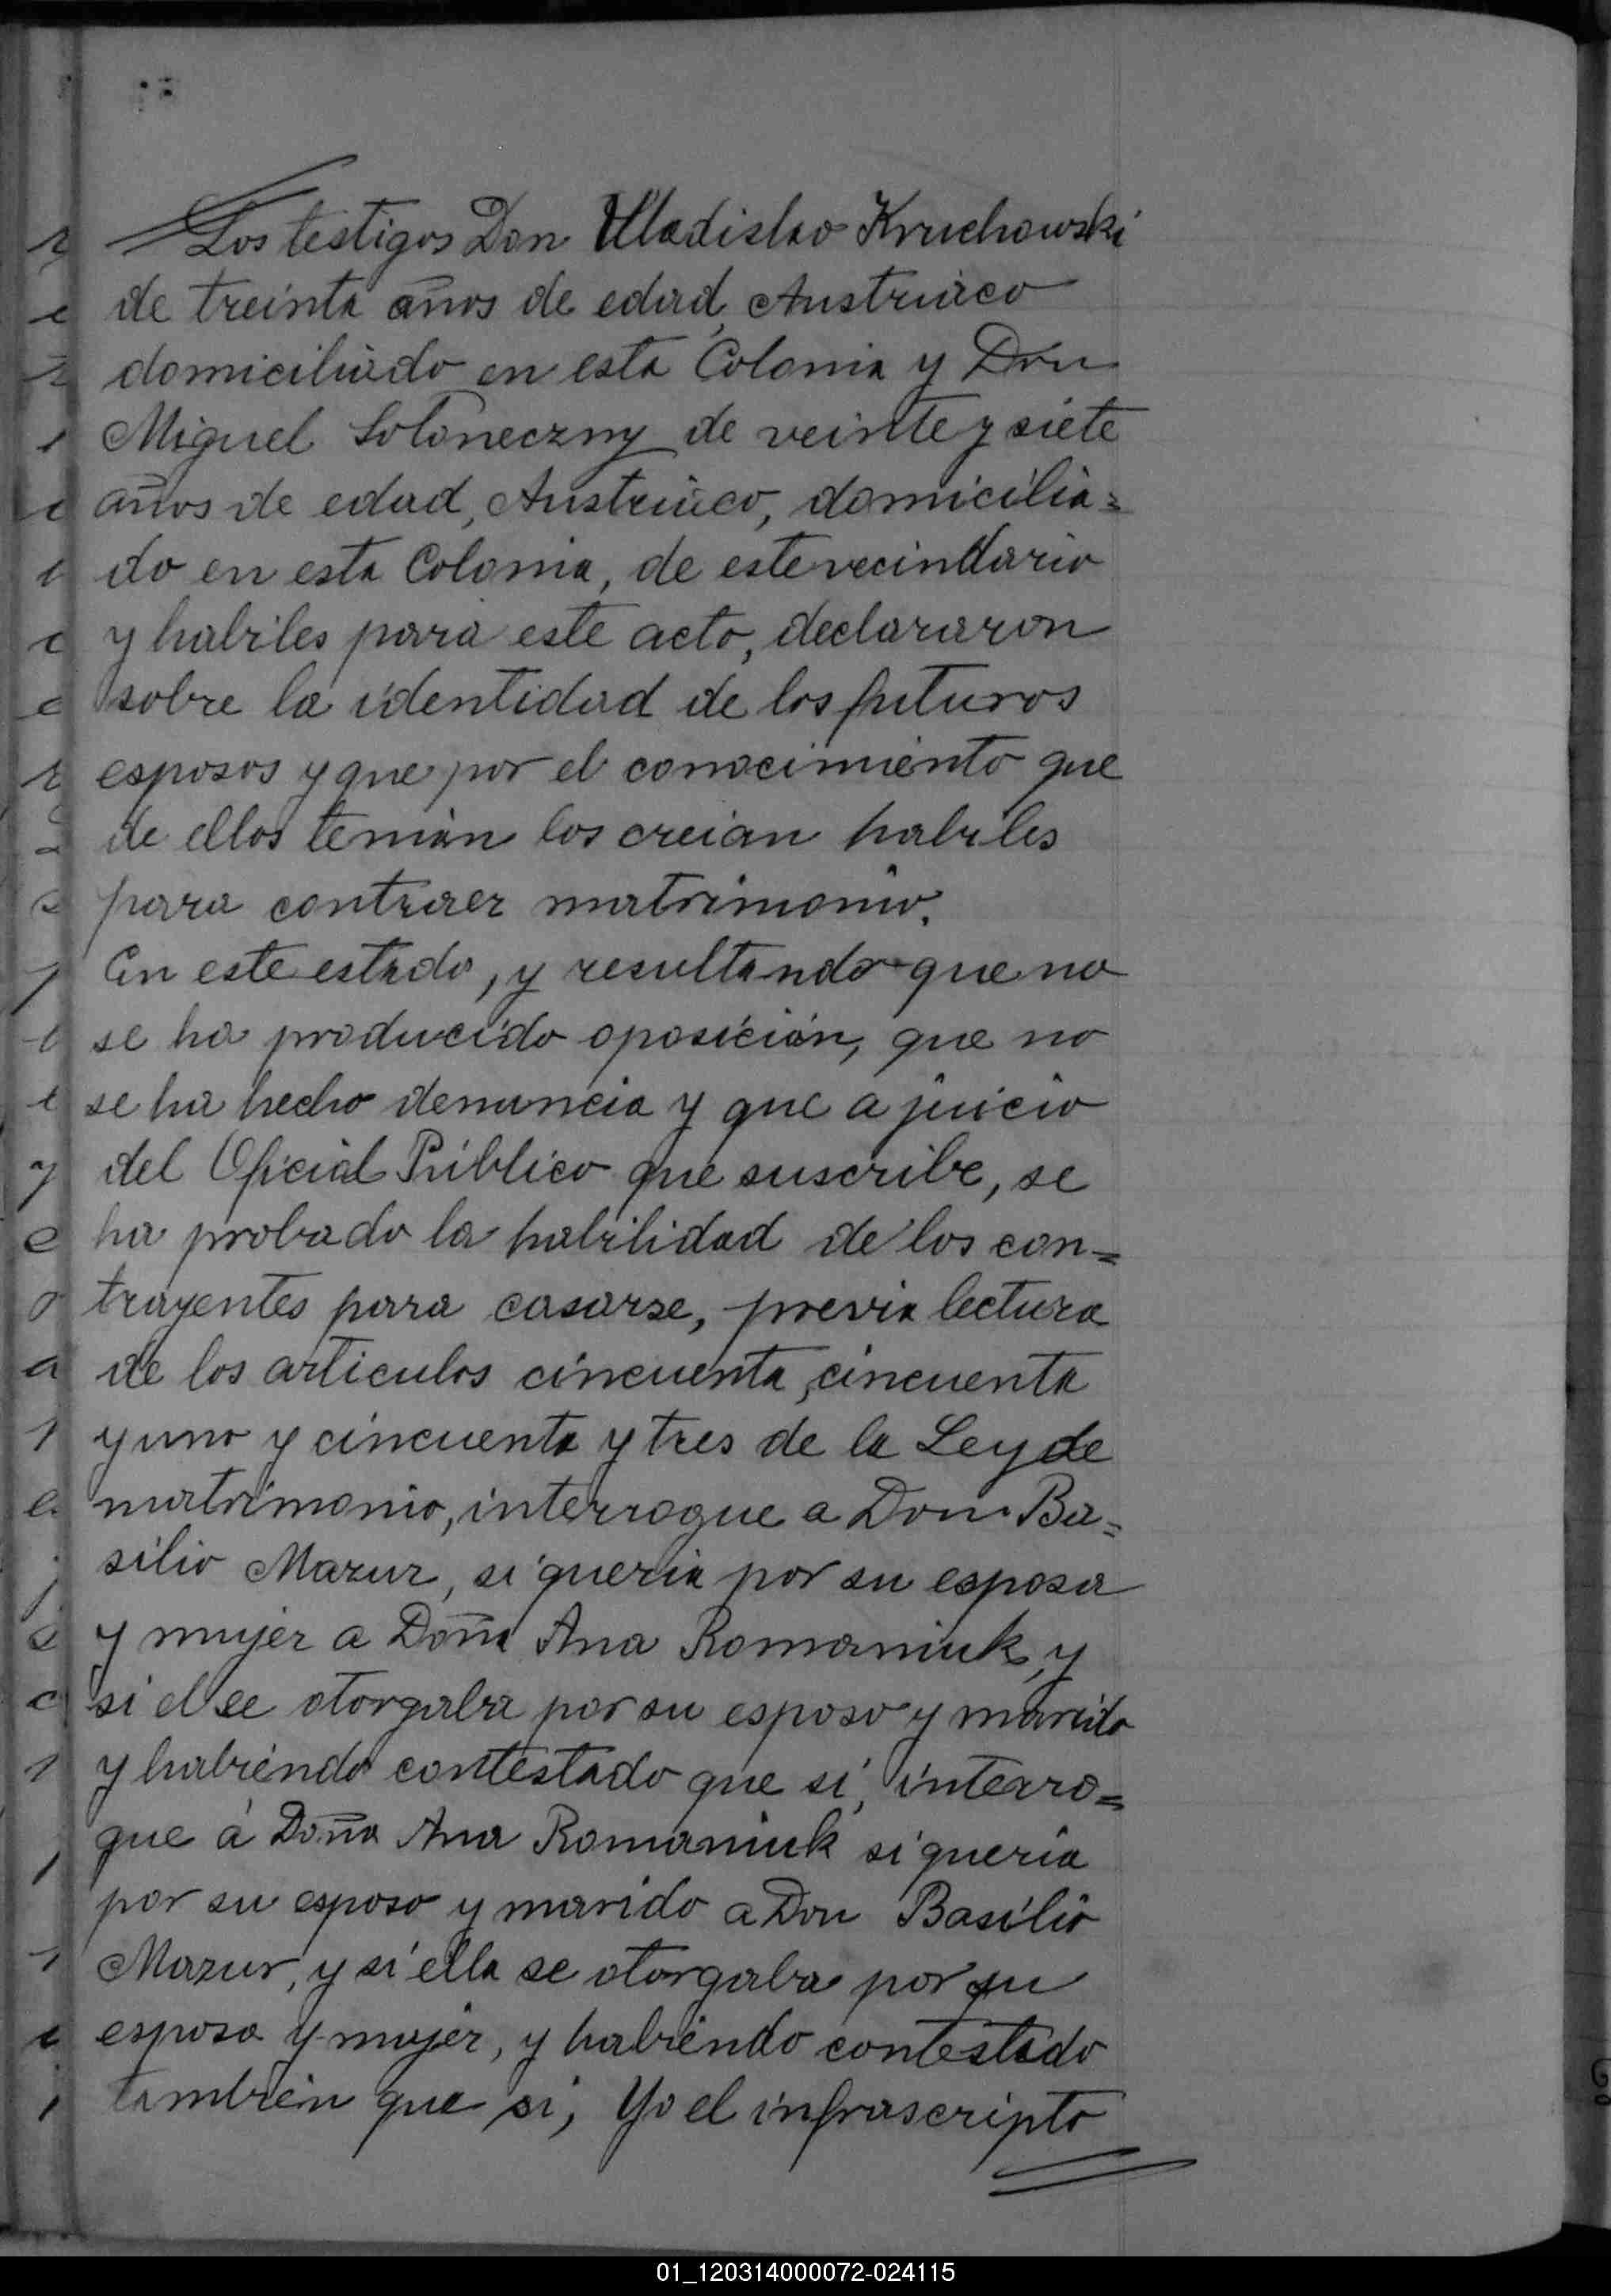 Los testigos Don Uladislao Kruchowski
de treinta años de edad, Austriaco
domiciliado en esta Colonia y Don
Miguel Soloneczny de veinte y siete
años de edad, Austriaco, domicilia=
do en esta Colonia, de este vecindario
y habiles para este acto, declararon
sobre la identidad de los futuros
esposos y que por el conocimiento que
de ellos tenian los creian habiles
para contraer matrimonio.
En este estado, y resultando que no
se ha producido oposición, que no
se ha hecho denuncia y que a juicio
del Oficial Público que suscribe, se
ha probado la habilidad de los con=
trayentes para casarse, previa lectura
de los articulos cincuenta, cincuenta
y uno y cincuenta y tres de la Ley de
matrimonio, interrogue a Don Ba=
silio Mazur, si queria por su esposa
y mujer a Doña Ana Romaniuk, y
si el se otorgaba por su esposo y marido
y habiendo contestado que si, interro=
gue á Doña Ana Romaniuk si queria
por su esposo y marido a Don Basilio
Mazur, y si ella se otorgaba por su
esposa y mujer, y habiendo contestado
tambien que si, Yo el infrascripto
01_120314000072-024115